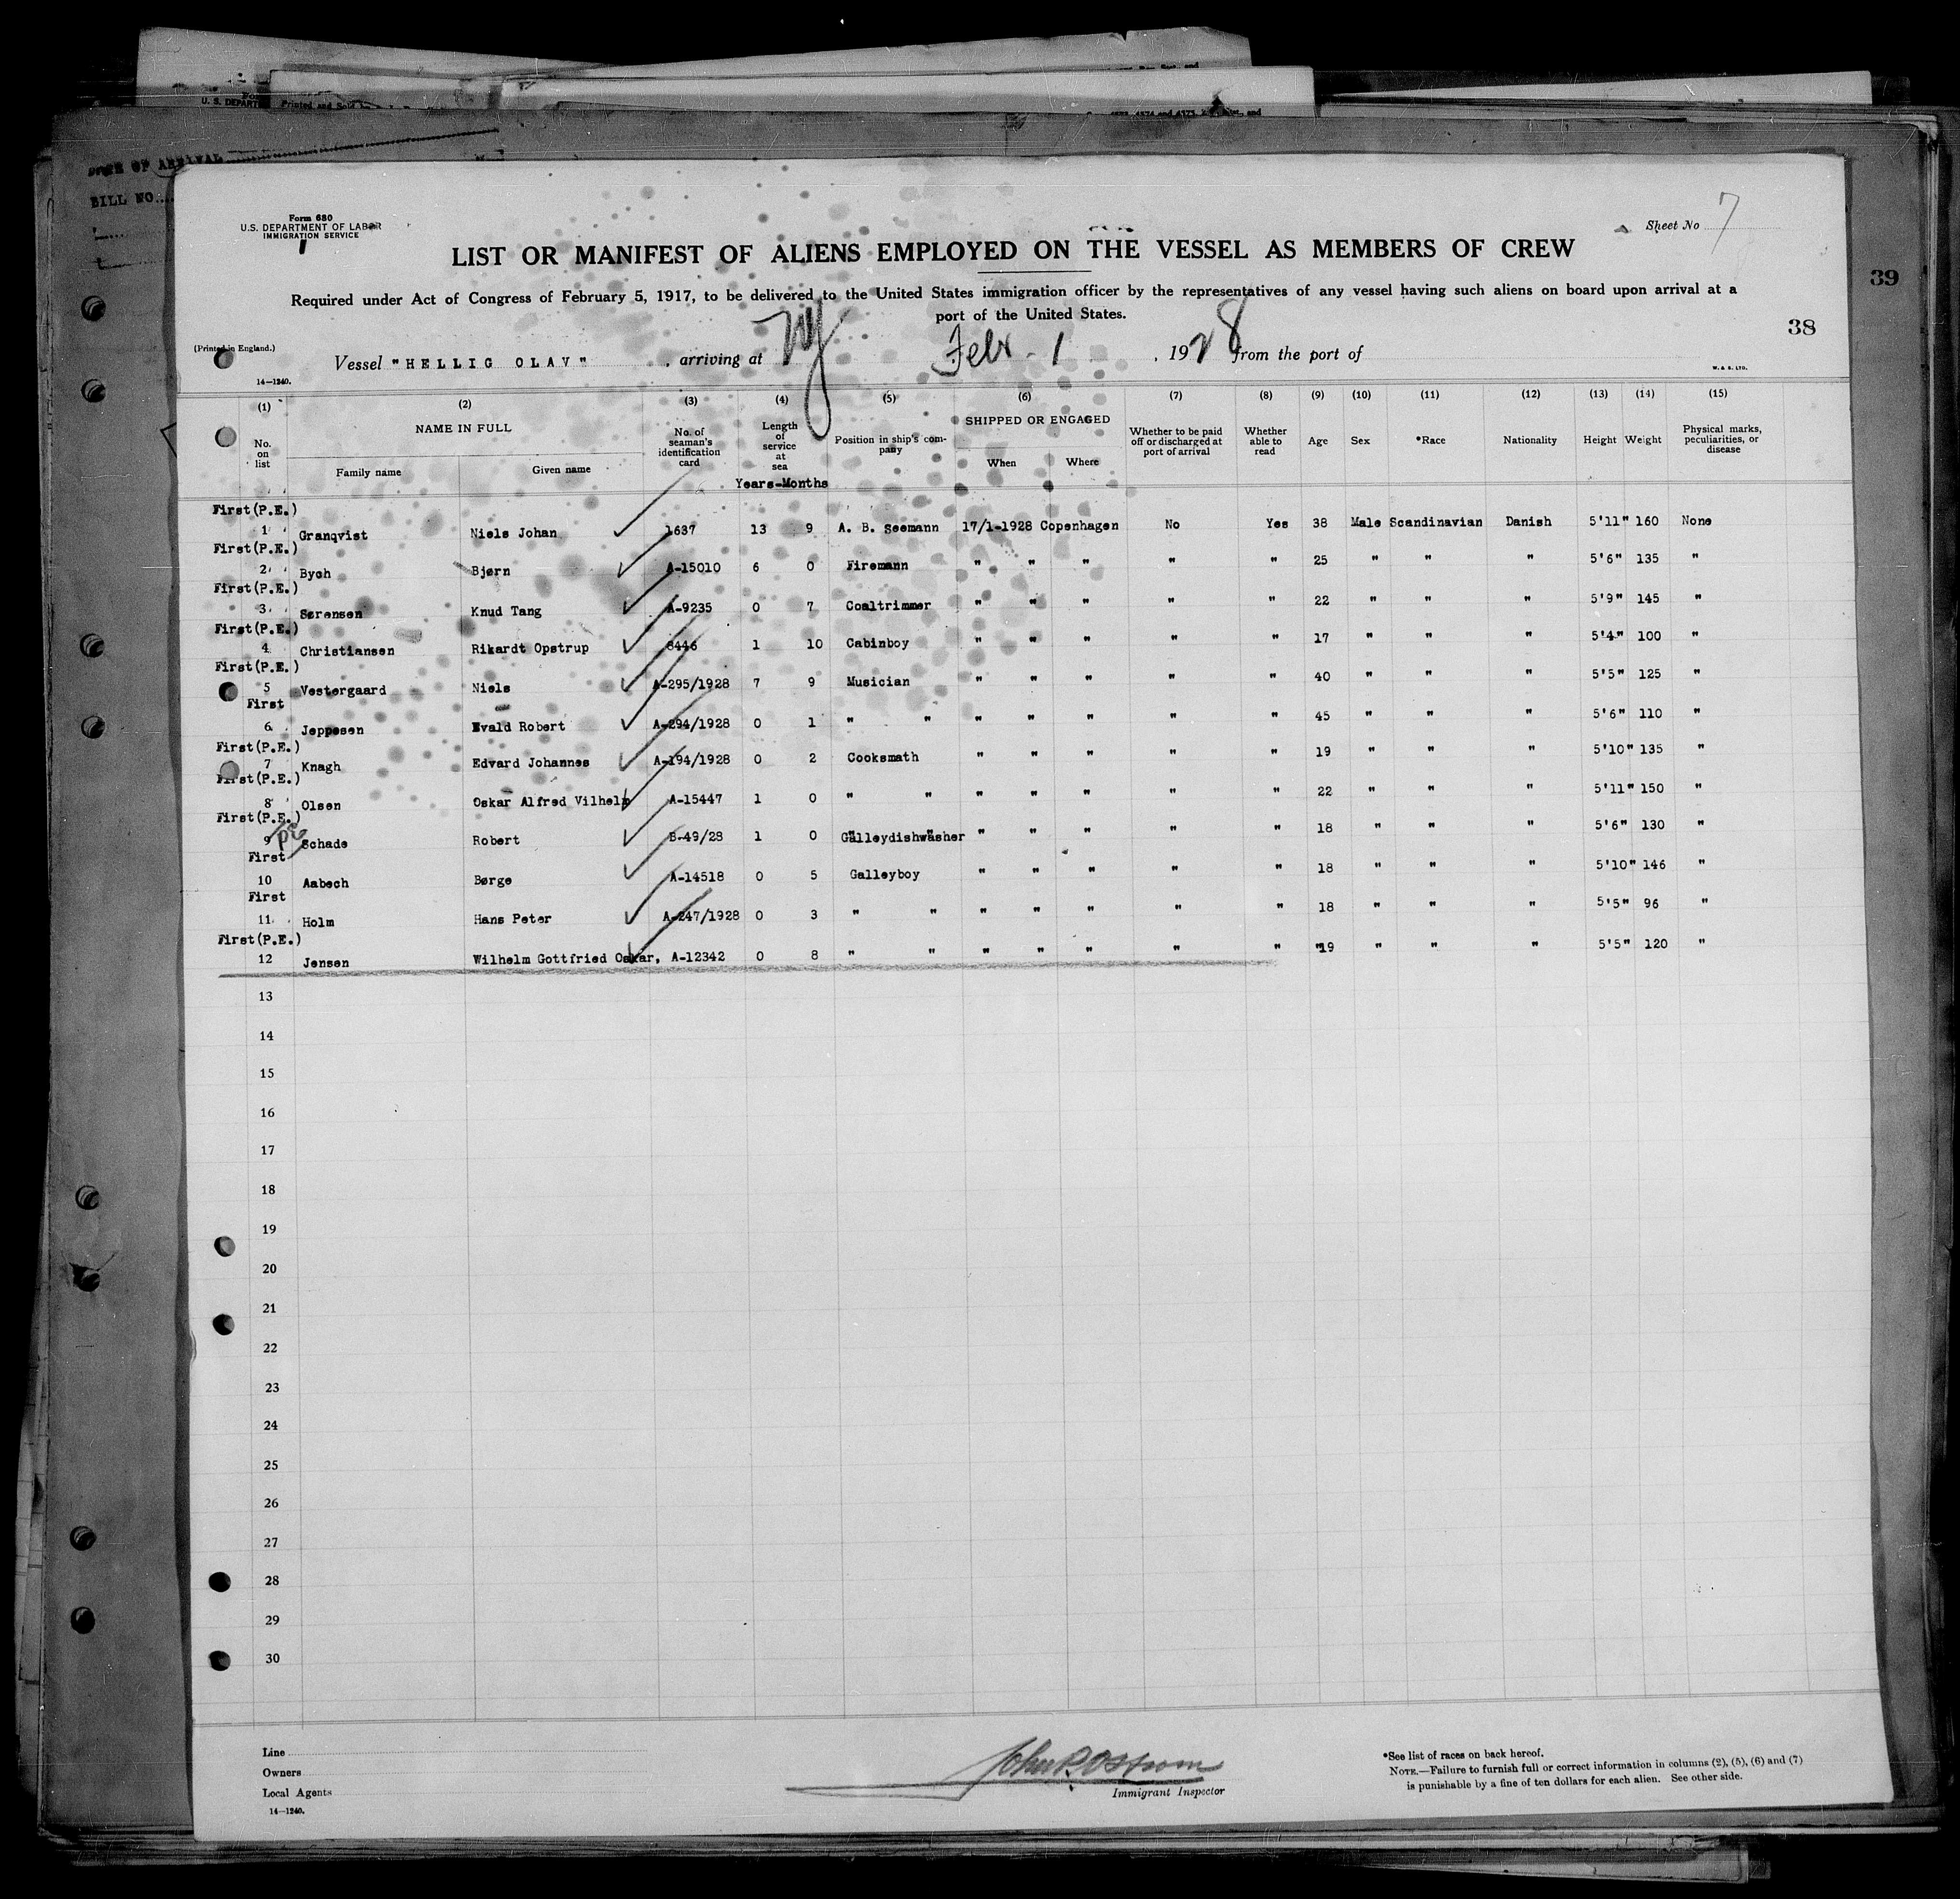 DATE OF ARRIVAL
BILL NO.
Form 680
U.S. DEPARTMENT OF LABOR
IMMIGRATION SERVICE
Sheet No 7
LIST OR MANIFEST OF ALIENS EMPLOYED ON THE VESSEL AS MEMBERS OF CREW
39
Required under Act of Congress of February 5, 1917, to be delivered to the United States immigration officer by the representatives of any vessel having such aliens on board upon arrival at a
port of the United States.
38
(Printed in England.)
Vessel "HELLIG OLAV", arriving at NY Febr. 1, 1928 from the port of
14—1240.
W. & S. LTD.
(1) (2) (3) (4) (5) (6) (7) (8) (9) (10) (11) (12) (13) (14) (15)
No. on list NAME IN FULL Family name Given name No. of seaman's identification card Length of service at sea Position in ship's company SHIPPED OR ENGAGED When Where Whether to be paid off or discharged at port of arrival Whether able to read Age Sex *Race Nationality Height Weight Physical marks, peculiarities, or disease
Years-Months
First(P.E.)
1 Granqvist Niels Johan 1637 13 9 A. B. Seemann 17/1-1928 Copenhagen No Yes 38 Male Scandinavian Danish 5'11" 160 None
First(P.E.)
2 Bych Bjørn A-15010 6 0 Firemann " " " " " 25 " " " 5'6" 135 "
First(P.E.)
3 Sørensen Knud Tang A-9235 0 7 Coaltrimmer " " " " " 22 " " " 5'9" 145 "
First(P.E.)
4 Christiansen Rikardt Opstrup 8446 1 10 Cabinboy " " " " " 17 " " " 5'4" 100 "
First(P.E.)
5 Vestergaard Niels A-295/1928 7 9 Musician " " " " " 40 " " " 5'5" 125 "
First
6 Jeppesen Evald Robert A-294/1928 0 1 " " " " " " " 45 " " " 5'6" 110 "
First(P.E.)
7 Knagh Edvard Johannes A-194/1928 0 2 Cooksmath " " " " " 19 " " " 5'10" 135 "
First(P.E.)
8 Olsen Oskar Alfred Vilhelm A-15447 1 0 " " " " " " " 22 " " " 5'11" 150 "
First(P.E.)
9 PE Schade Robert B-49/28 1 0 Galleydishwasher " " " " " 18 " " " 5'6" 130 "
First
10 Aabech Børge A-14518 0 5 Galleyboy " " " " " 18 " " " 5'10" 146 "
First
11 Holm Hans Peter A-247/1928 0 3 " " " " " " " 18 " " " 5'5" 96 "
First(P.E.)
12 Jensen Wilhelm Gottfried Oskar, A-12342 0 8 " " " " " " " "19 " " " 5'5" 120 "
13
14
15
16
17
18
19
20
21
22
23
24
25
26
27
28
29
30
Line
Owners
Local Agents
14—1240.
John P. Ostrom
Immigrant Inspector
*See list of races on back hereof.
NOTE.—Failure to furnish full or correct information in columns (2), (5), (6) and (7)
is punishable by a fine of ten dollars for each alien. See other side.